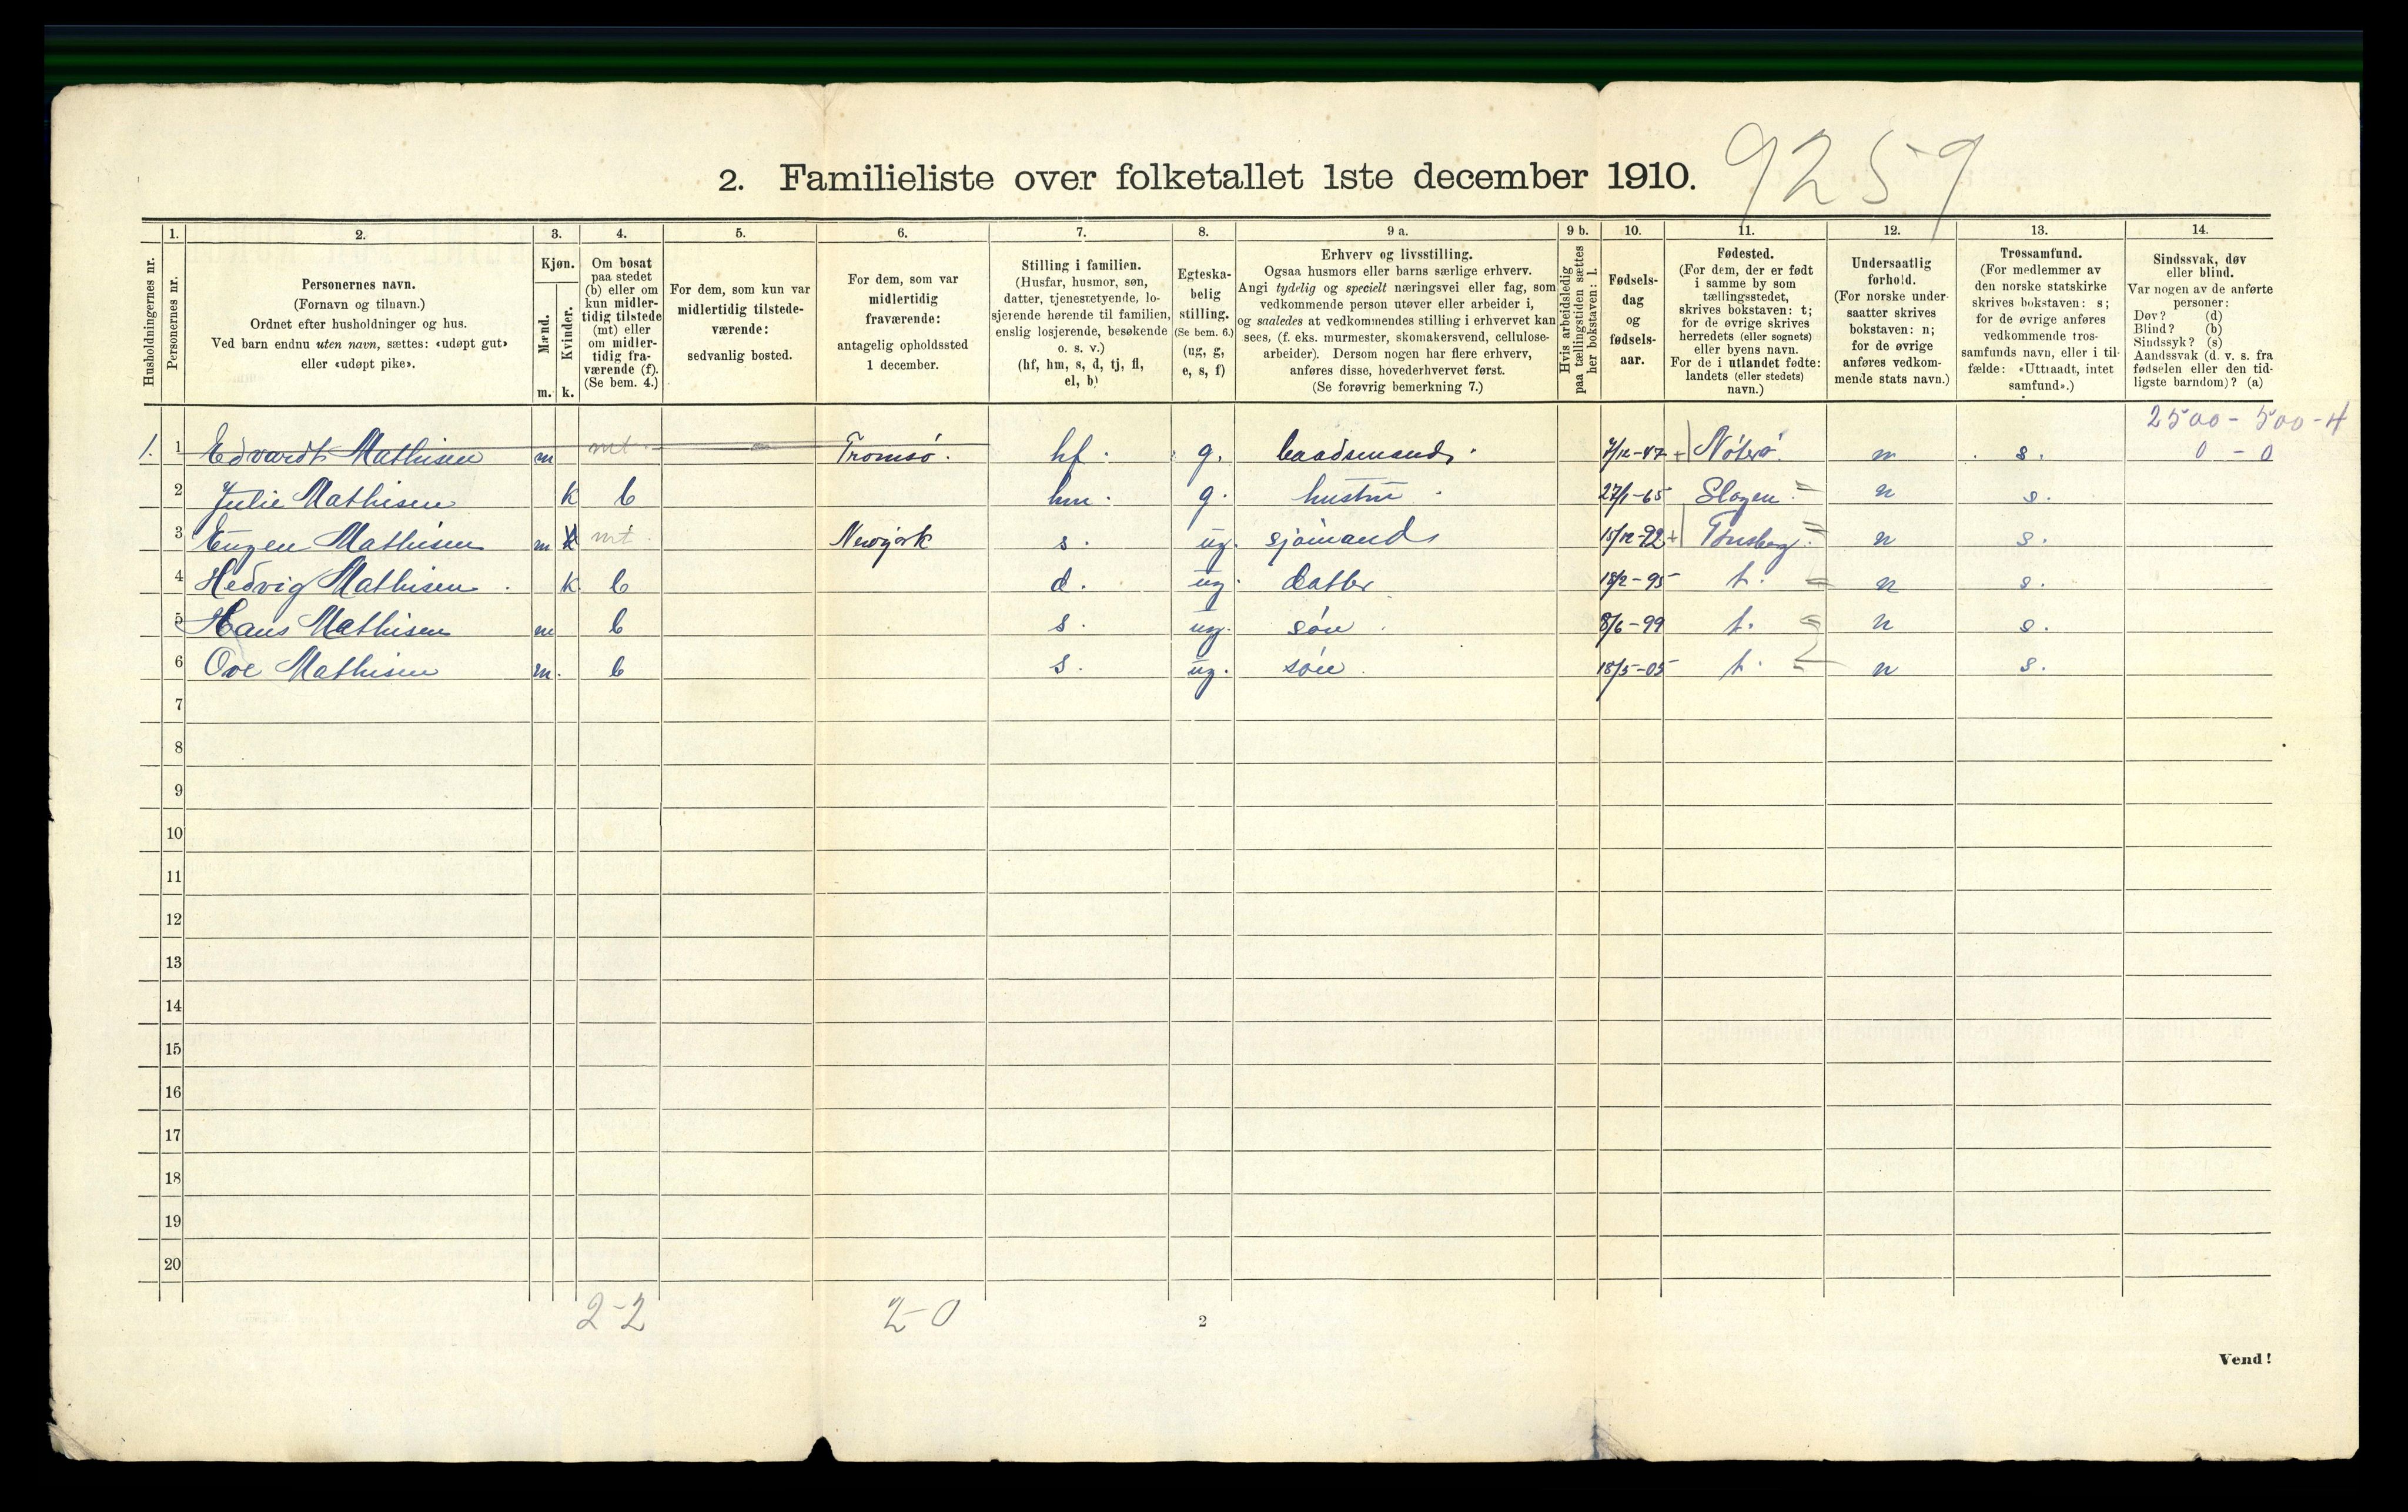 9259
2. Familieliste over folketallet 1ste december 1910.
Husholdningernes nr.
1.
Personernes nr.
2.
Personernes navn.
(Fornavn og tilnavn.)
Ordnet efter husholdninger og hus.
Ved barn endnu uten navn, sættes: «udøpt gut»
eller «udøpt pike».
3.
Kjøn.
Mænd.
Kvinder.
m. k.
4.
Om bosat
paa stedet
(b) eller om
kun midler-
tidig tilstede
(mt) eller
om midler-
tidig fra-
værende (f).
(Se bem. 4.)
5.
For dem, som kun var
midlertidig tilstede-
værende:
sedvanlig bosted.
6.
For dem, som var
midlertidig
fraværende:
antagelig opholdssted
1 december.
7.
Stilling i familien.
(Husfar, husmor, søn,
datter, tjenestetyende, lo-
sjerende hørende til familien,
enslig losjerende, besøkende
o. s. v.)
(hf, hm, s, d, tj, fl,
el, b)
8.
Egteska-
belig
stilling.
(Se bem. 6.)
(ug, g,
e, s, f)
9 a.
Erhverv og livsstilling.
Ogsaa husmors eller barns særlige erhverv.
Angi tydelig og specielt næringsvei eller fag, som
vedkommende person utøver eller arbeider i,
og saaledes at vedkommendes stilling i erhvervet kan
sees, (f. eks. murmester, skomakersvend, cellulose-
arbeider). Dersom nogen har flere erhverv,
anføres disse, hovederhvervet først.
(Se forøvrig bemerkning 7.)
9 b.
Hvis arbeidsledig
paa tællingstiden sættes
her bokstaven: l.
10.
Fødsels-
dag
og
fødsels-
aar.
11.
Fødested.
(For dem, der er født
i samme by som
tællingsstedet,
skrives bokstaven: t;
for de øvrige skrives
herredets (eller sognets)
eller byens navn.
For de i utlandet fødte:
landets (eller stedets)
navn.)
12.
Undersaatlig
forhold.
(For norske under-
saatter skrives
bokstaven: n;
for de øvrige
anføres vedkom-
mende stats navn.)
13.
Trossamfund.
(For medlemmer av
den norske statskirke
skrives bokstaven: s;
for de øvrige anføres
vedkommende tros-
samfunds navn, eller i til-
fælde: «Uttraadt, intet
samfund».)
14.
Sindssvak, døv
eller blind.
Var nogen av de anførte
personer:
Døv? (d)
Blind? (b)
Sindssyk? (s)
Aandssvak (d. v. s. fra
fødselen eller den tid-
ligste barndom)? (a)
2500 - 500 - 4
0 - 0
1. 1 Edvardt Mathisen m mt Tromsø. hf. g. baadsmand. 7/12-47 + Nøterø. n s.
2 Julie Mathisen k b hm. g. hustru 27/1-65 Slagen = n s.
3 Eugen Mathisen m k mt. Newyork s. ug. sjømand 15/12-92 + Tønsberg = n s.
4 Hedvig Mathisen k b d. ug. datter 18/2-95 t. = n s.
5 Hans Mathisen m b s. ug. søn 8/6-99 t. = n s.
6 Ove Mathisen m. b s. ug. søn 18/5-05 t. = n s.
7
8
9
10
11
12
13
14
15
16
17
18
19
20
2-2 2-0
2
Vend!